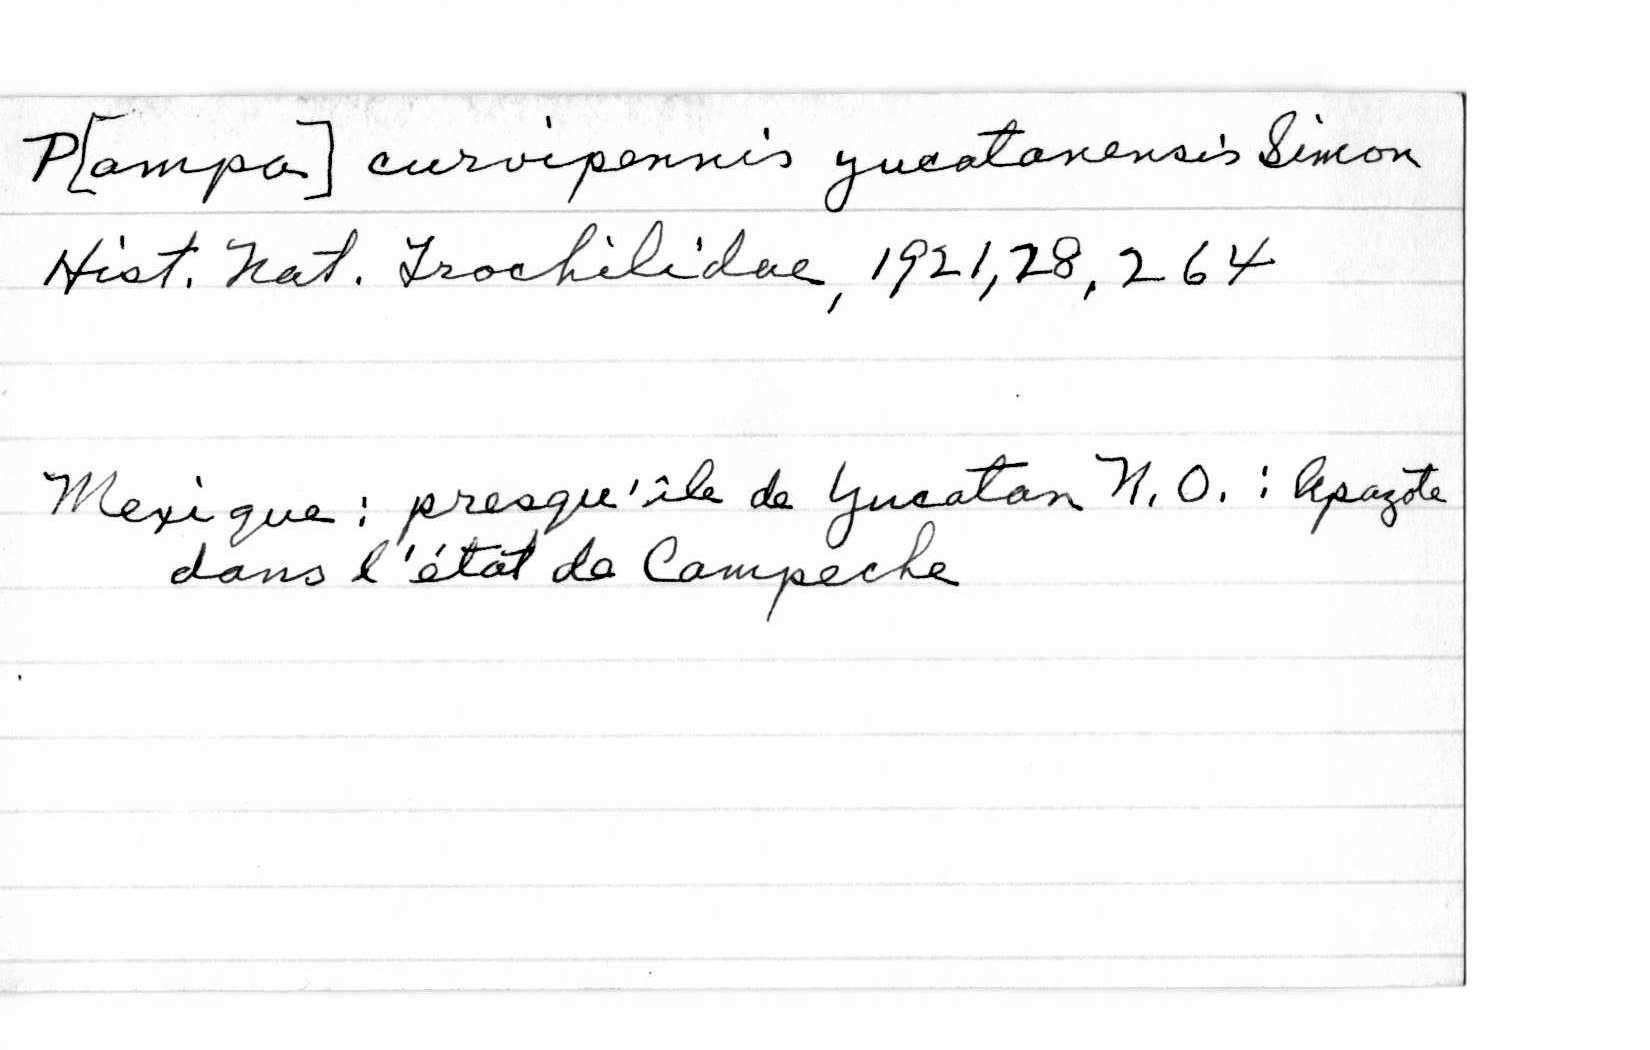 P[ampa] curvipennis yucatanensis Simon
Hist. Nat. Trochilidae, 1921, 28, 264
Mexique : presqu'île de Yucatan N.O. : Apazote
dans l'état de Campeche